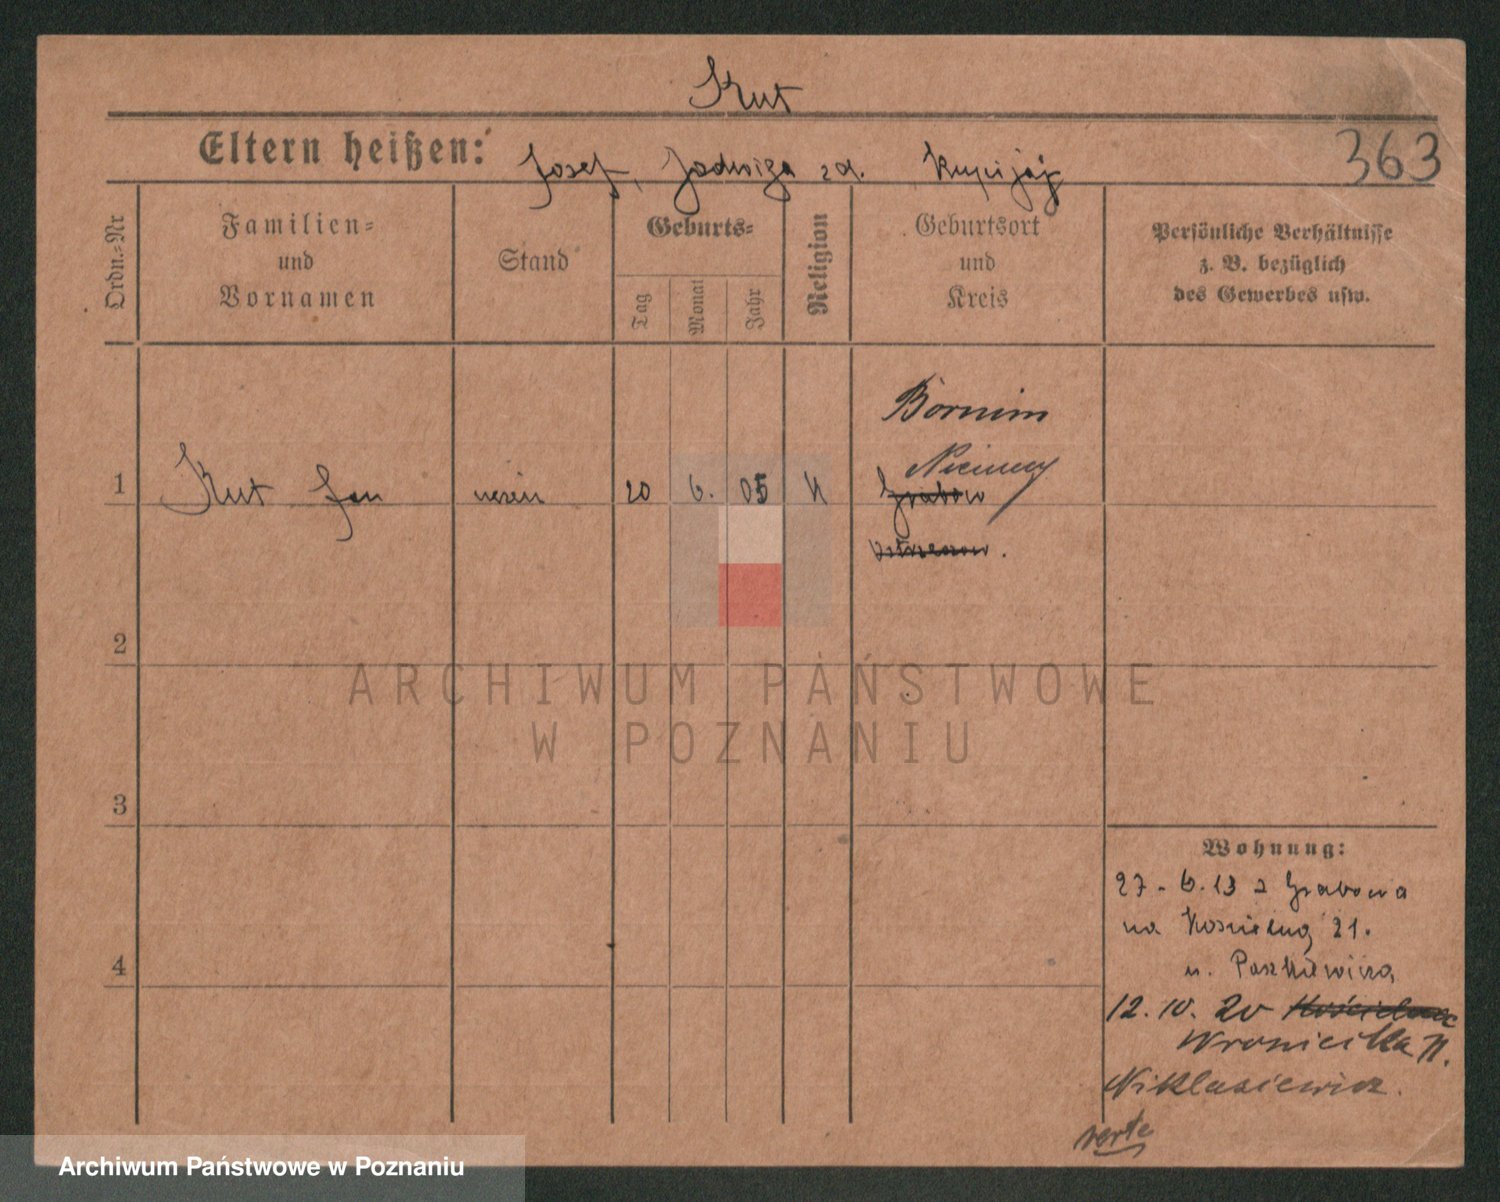 Kut
Eltern heißen: Josef, Jadwiga zd.
363
Ordn.-Nr
Familien- und Vornamen
Stand
Geburts-
Tag
Monat
Jahr
Religion
Geburtsort und Kreis
Persönliche Verhältnisse z. B. bezüglich des Gewerbes usw.
Bornim
1 Kut Jan uczeń 20 6. 05 K
Grabow
2
3
4
Wohnung:
27-6.13 z Grabowa
na Kościelną 21.
u. Paszkiewicza
12.10.20
Wroniecka 11.
Niklasiewicz.
verte
ARCHIWUM PAŃSTWOWE
W POZNANIU
Archiwum Państwowe w Poznaniu